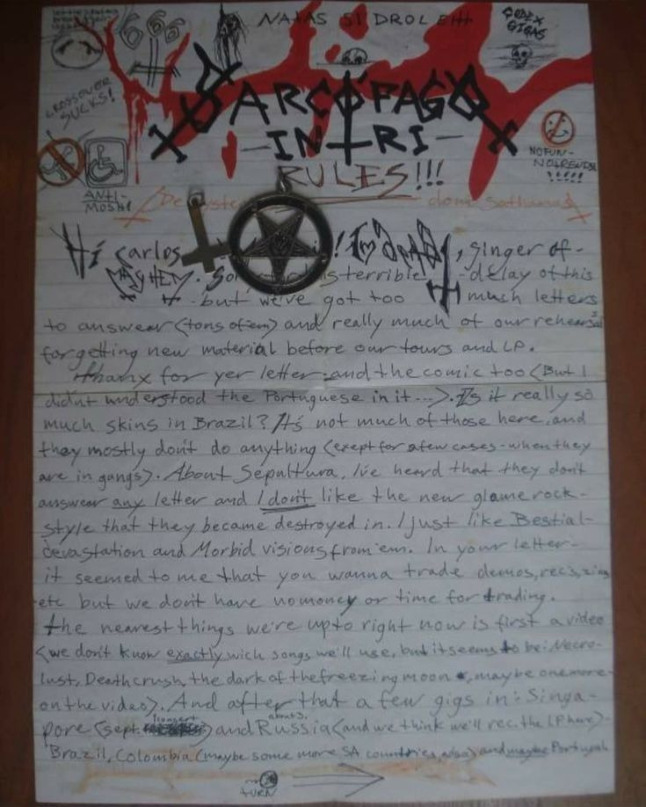 666
NATAS SI DROL EHT
CODEX
GIGAS
CROSSOVER
SUCKS!
SARCÓFAGO
-IN-TRI-
RULES!!!
NO FUN-
NO TRENDS!
!!!!!
ANTI-
MOSH!
Hi Carlos ! I'm DEAD, singer of-
MAYHEM. So terrible delay of this
but we've got too much letters
to answear (tons of em) and really much of our rehearsal
for getting new material before our tours and LP.
Thanx for yer letter and the comic too (But I
didnt understood the Portuguese in it...). Is it really so
much skins in Brazil? It's not much of those here and
they mostly don't do anything (exept for a few cases-when they
are in gangs). About Sepultura, I've heard that they don't
answear any letter and I don't like the new glamerock-
style that they became destroyed in. I just like Bestial-
Devastation and Morbid visions from em. In your letter-
it seemed to me that you wanna trade demos, rec's, zines
etc but we don't have no money or time for trading.
The nearest things we're up to right now is first a video
(we don't know exactly wich songs we'll use, but it seems to be: Necro-
lust, Deathcrush, the dark of the freezing moon, maybe one more-
on the video). And after that a few gigs in: Singa-
pore (sept. 1 concert) and Russia (about 3. and we think we'll rec. the LP here)-
Brazil, Colombia (maybe some more SA countries also) and maybe Portugal
TURN